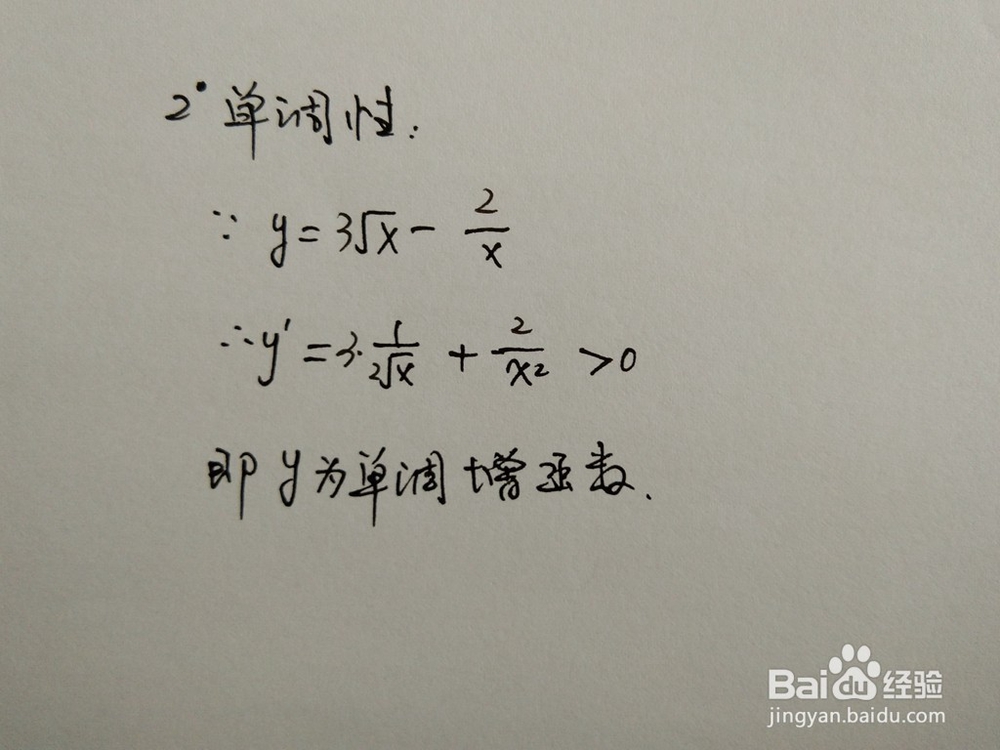 2° 单调性:
∵ y = 3√x - 2/x
∴ y' = 3·1/(2√x) + 2/x² > 0
即 y 为单调增函数.
Baidu经验
jingyan.baidu.com